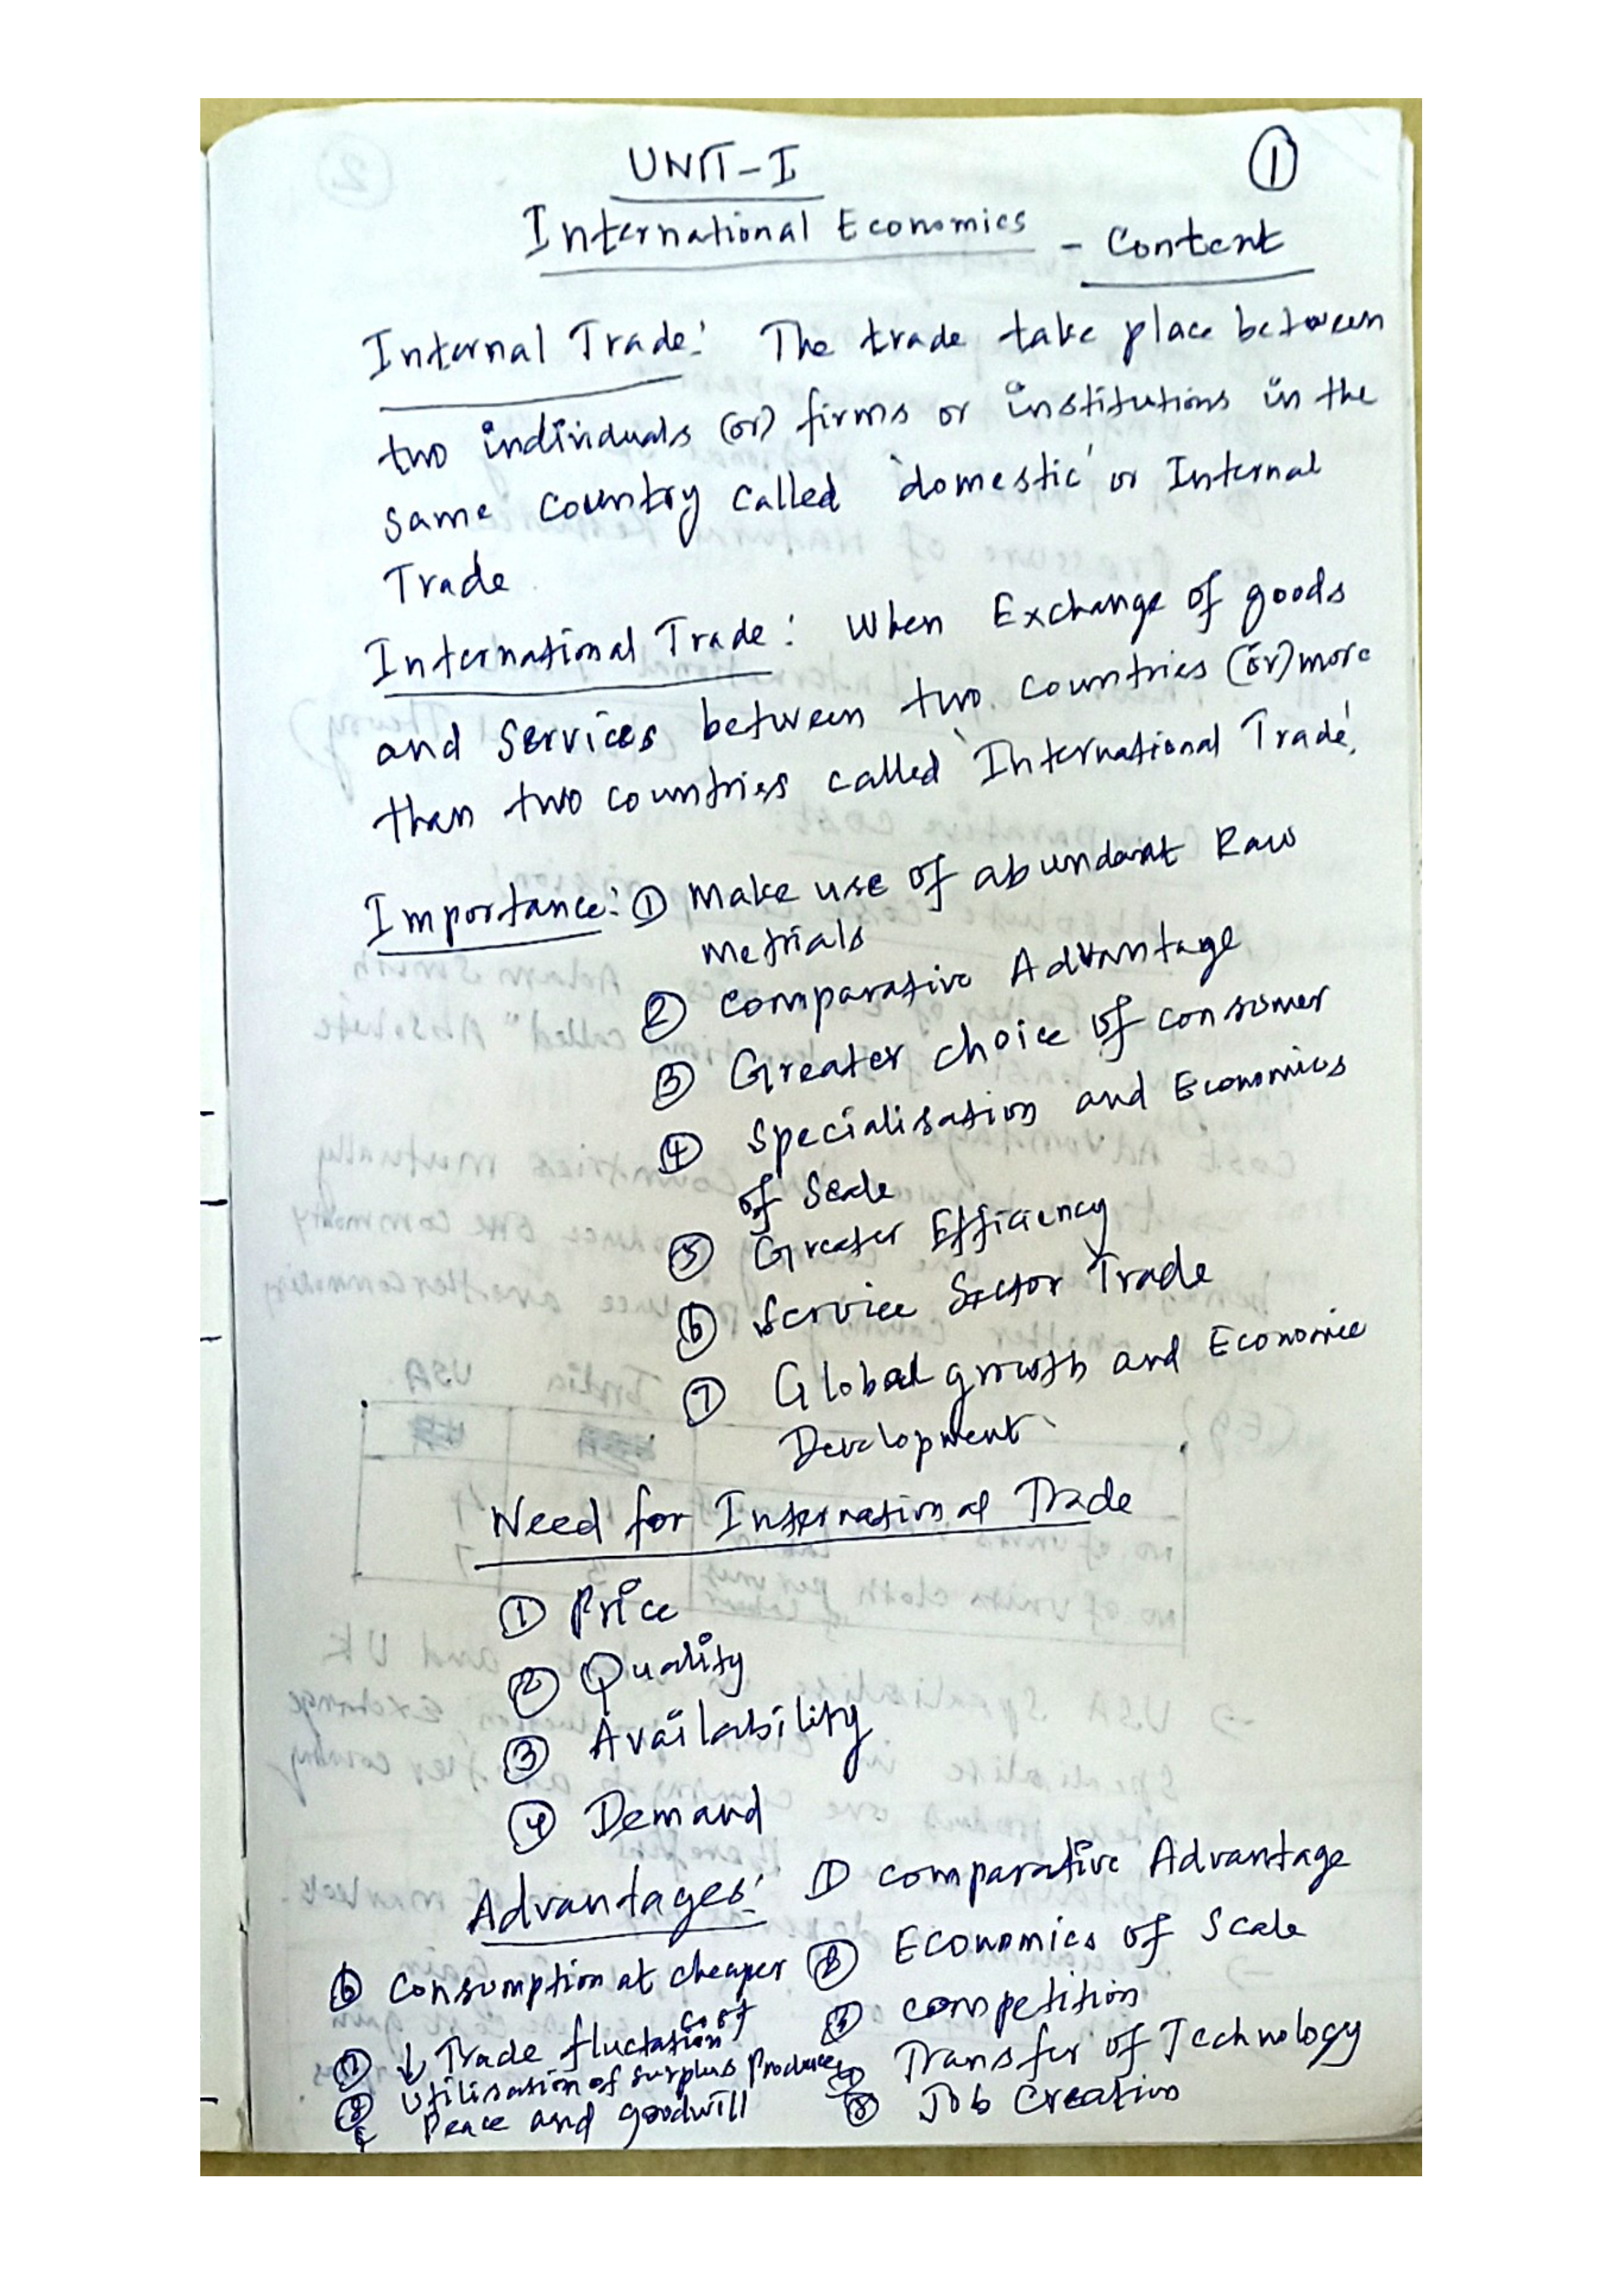 UNIT-I
①
International Economics - Content
Internal Trade: The trade take place between
two individuals (or) firms or institutions in the
same country called 'domestic' or Internal
Trade
International Trade: When Exchange of goods
and Services between two countries (or) more
than two countries called 'International Trade'.
Importance: ① Make use of abundant Raw
Metrials
② Comparative Advantage
③ Greater choice of consumer
④ Specialisation and Economics
of Scale
⑤ Greater Efficiency
⑥ Service Sector Trade
⑦ Global growth and Economic
Development
Need for International Trade
① Price
② Quality
③ Availability
④ Demand
Advantages: ① Comparative Advantage
② Economics of Scale
③ Competition
④ Transfer of Technology
⑤ Job Creation
⑥ Consumption at cheaper
cost
⑦ ↓ Trade fluctation
⑧ Utilisation of surplus Produce
Peace and goodwill